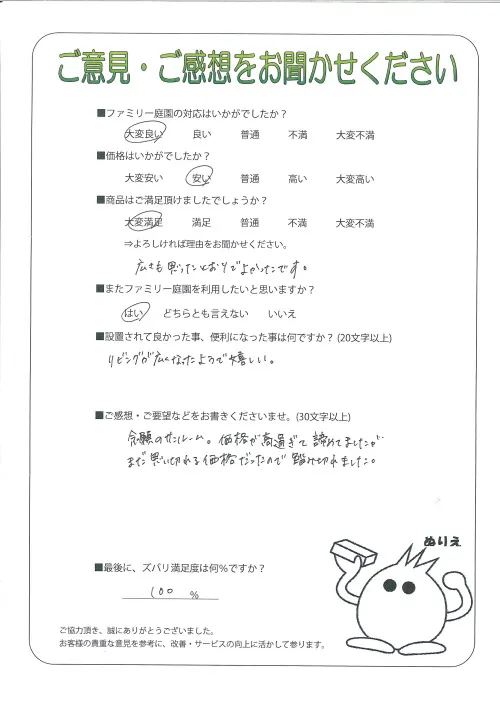 ご意見・ご感想をお聞かせください
■ファミリー庭園の対応はいかがでしたか？
大変良い 良い 普通 不満 大変不満
■価格はいかがでしたか？
大変安い 安い 普通 高い 大変高い
■商品はご満足頂けましたでしょうか？
大変満足 満足 普通 不満 大変不満
⇒よろしければ理由をお聞かせください。
広さも思ったとおりでよかったです。
■またファミリー庭園を利用したいと思いますか？
はい どちらとも言えない いいえ
■設置されて良かった事、便利になった事は何ですか？(20文字以上)
リビングが広くなったようで嬉しい。
■ご感想・ご要望などをお書きくださいませ。(30文字以上)
念願のサンルーム。価格が高過ぎて諦めてましたが
まだ思い切れる価格だったので踏み切れました。
ぬりえ
■最後に、ズバリ満足度は何%ですか？
100 %
ご協力頂き、誠にありがとうございました。
お客様の貴重な意見を参考に、改善・サービスの向上に活かして参ります。